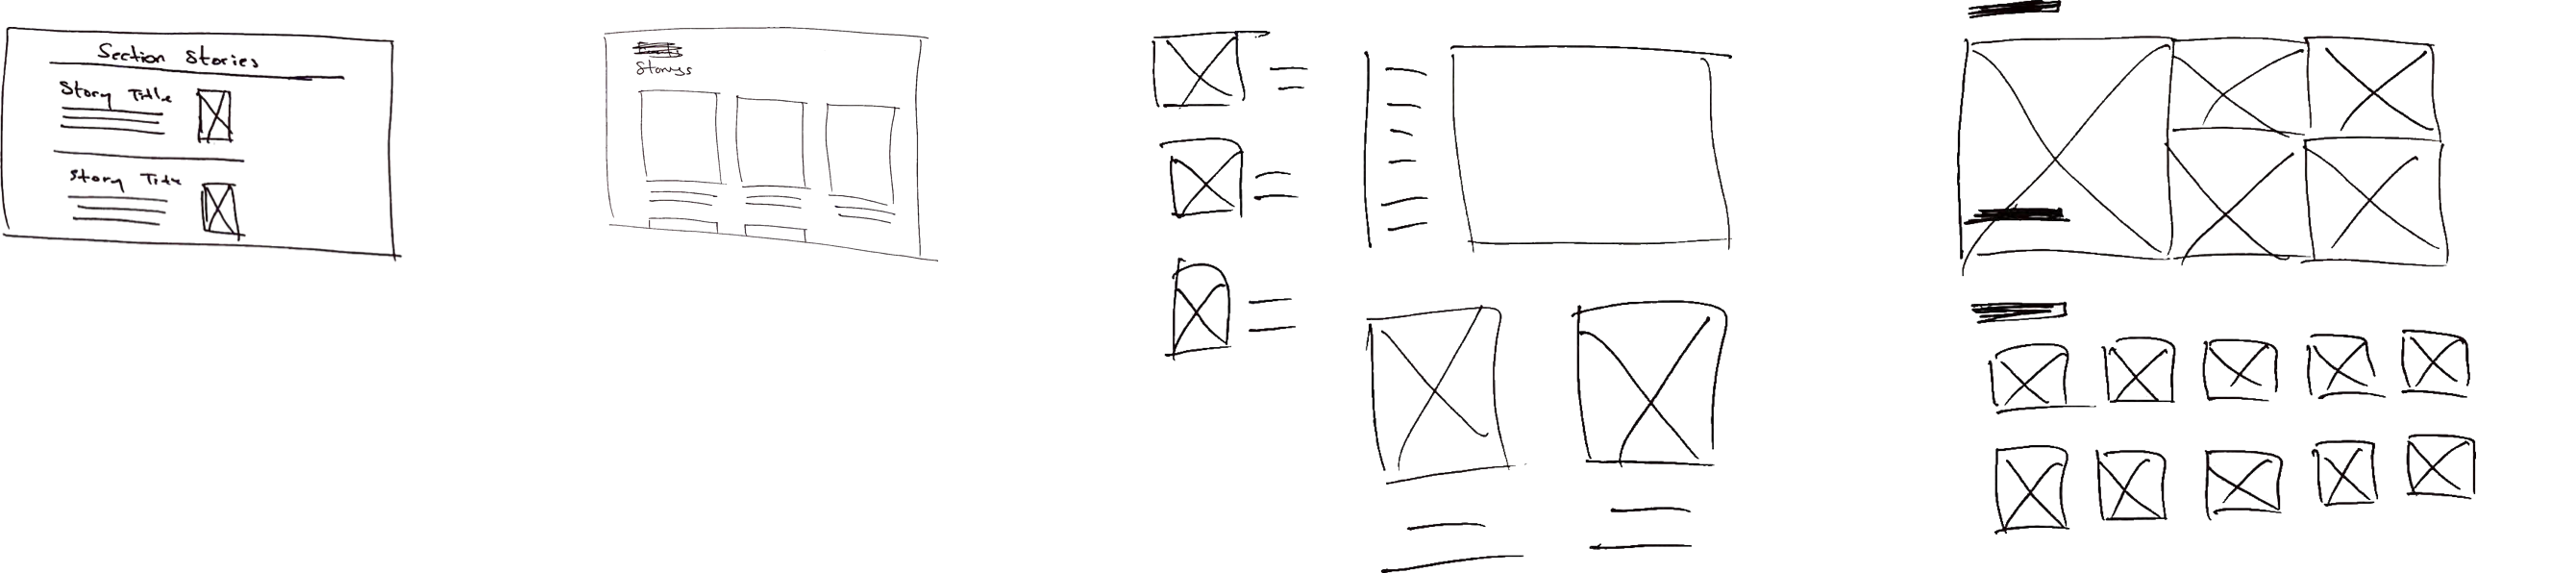 Section Stories
Story Title
Story Title
Storys